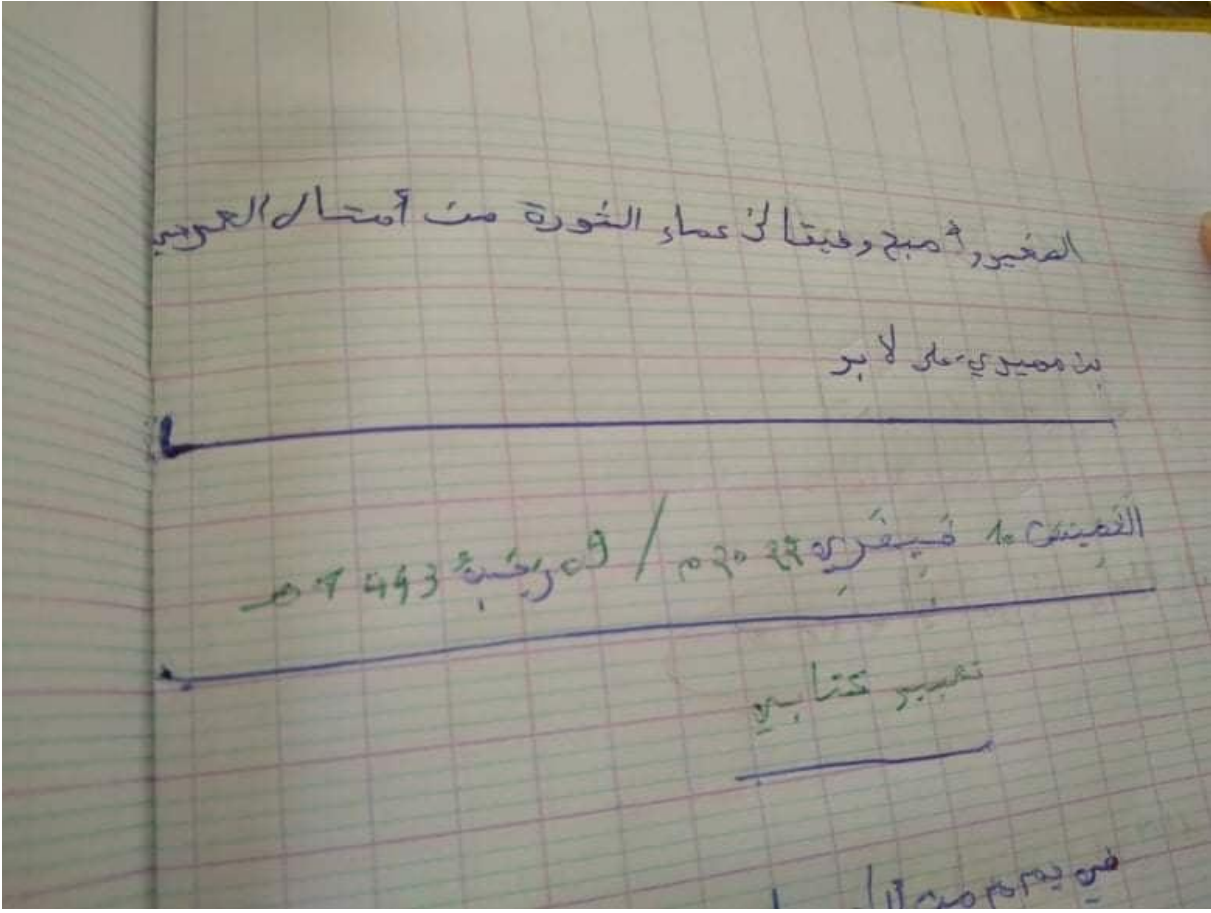 الصغير وأصبح رفيقا لزعماء الثورة من أمتال العربي
بن مهيدي علي لا بو
الخميس 10 فيفري 2022م / 09 رجب 1443 هـ
تعبير كتابي
في يوم من